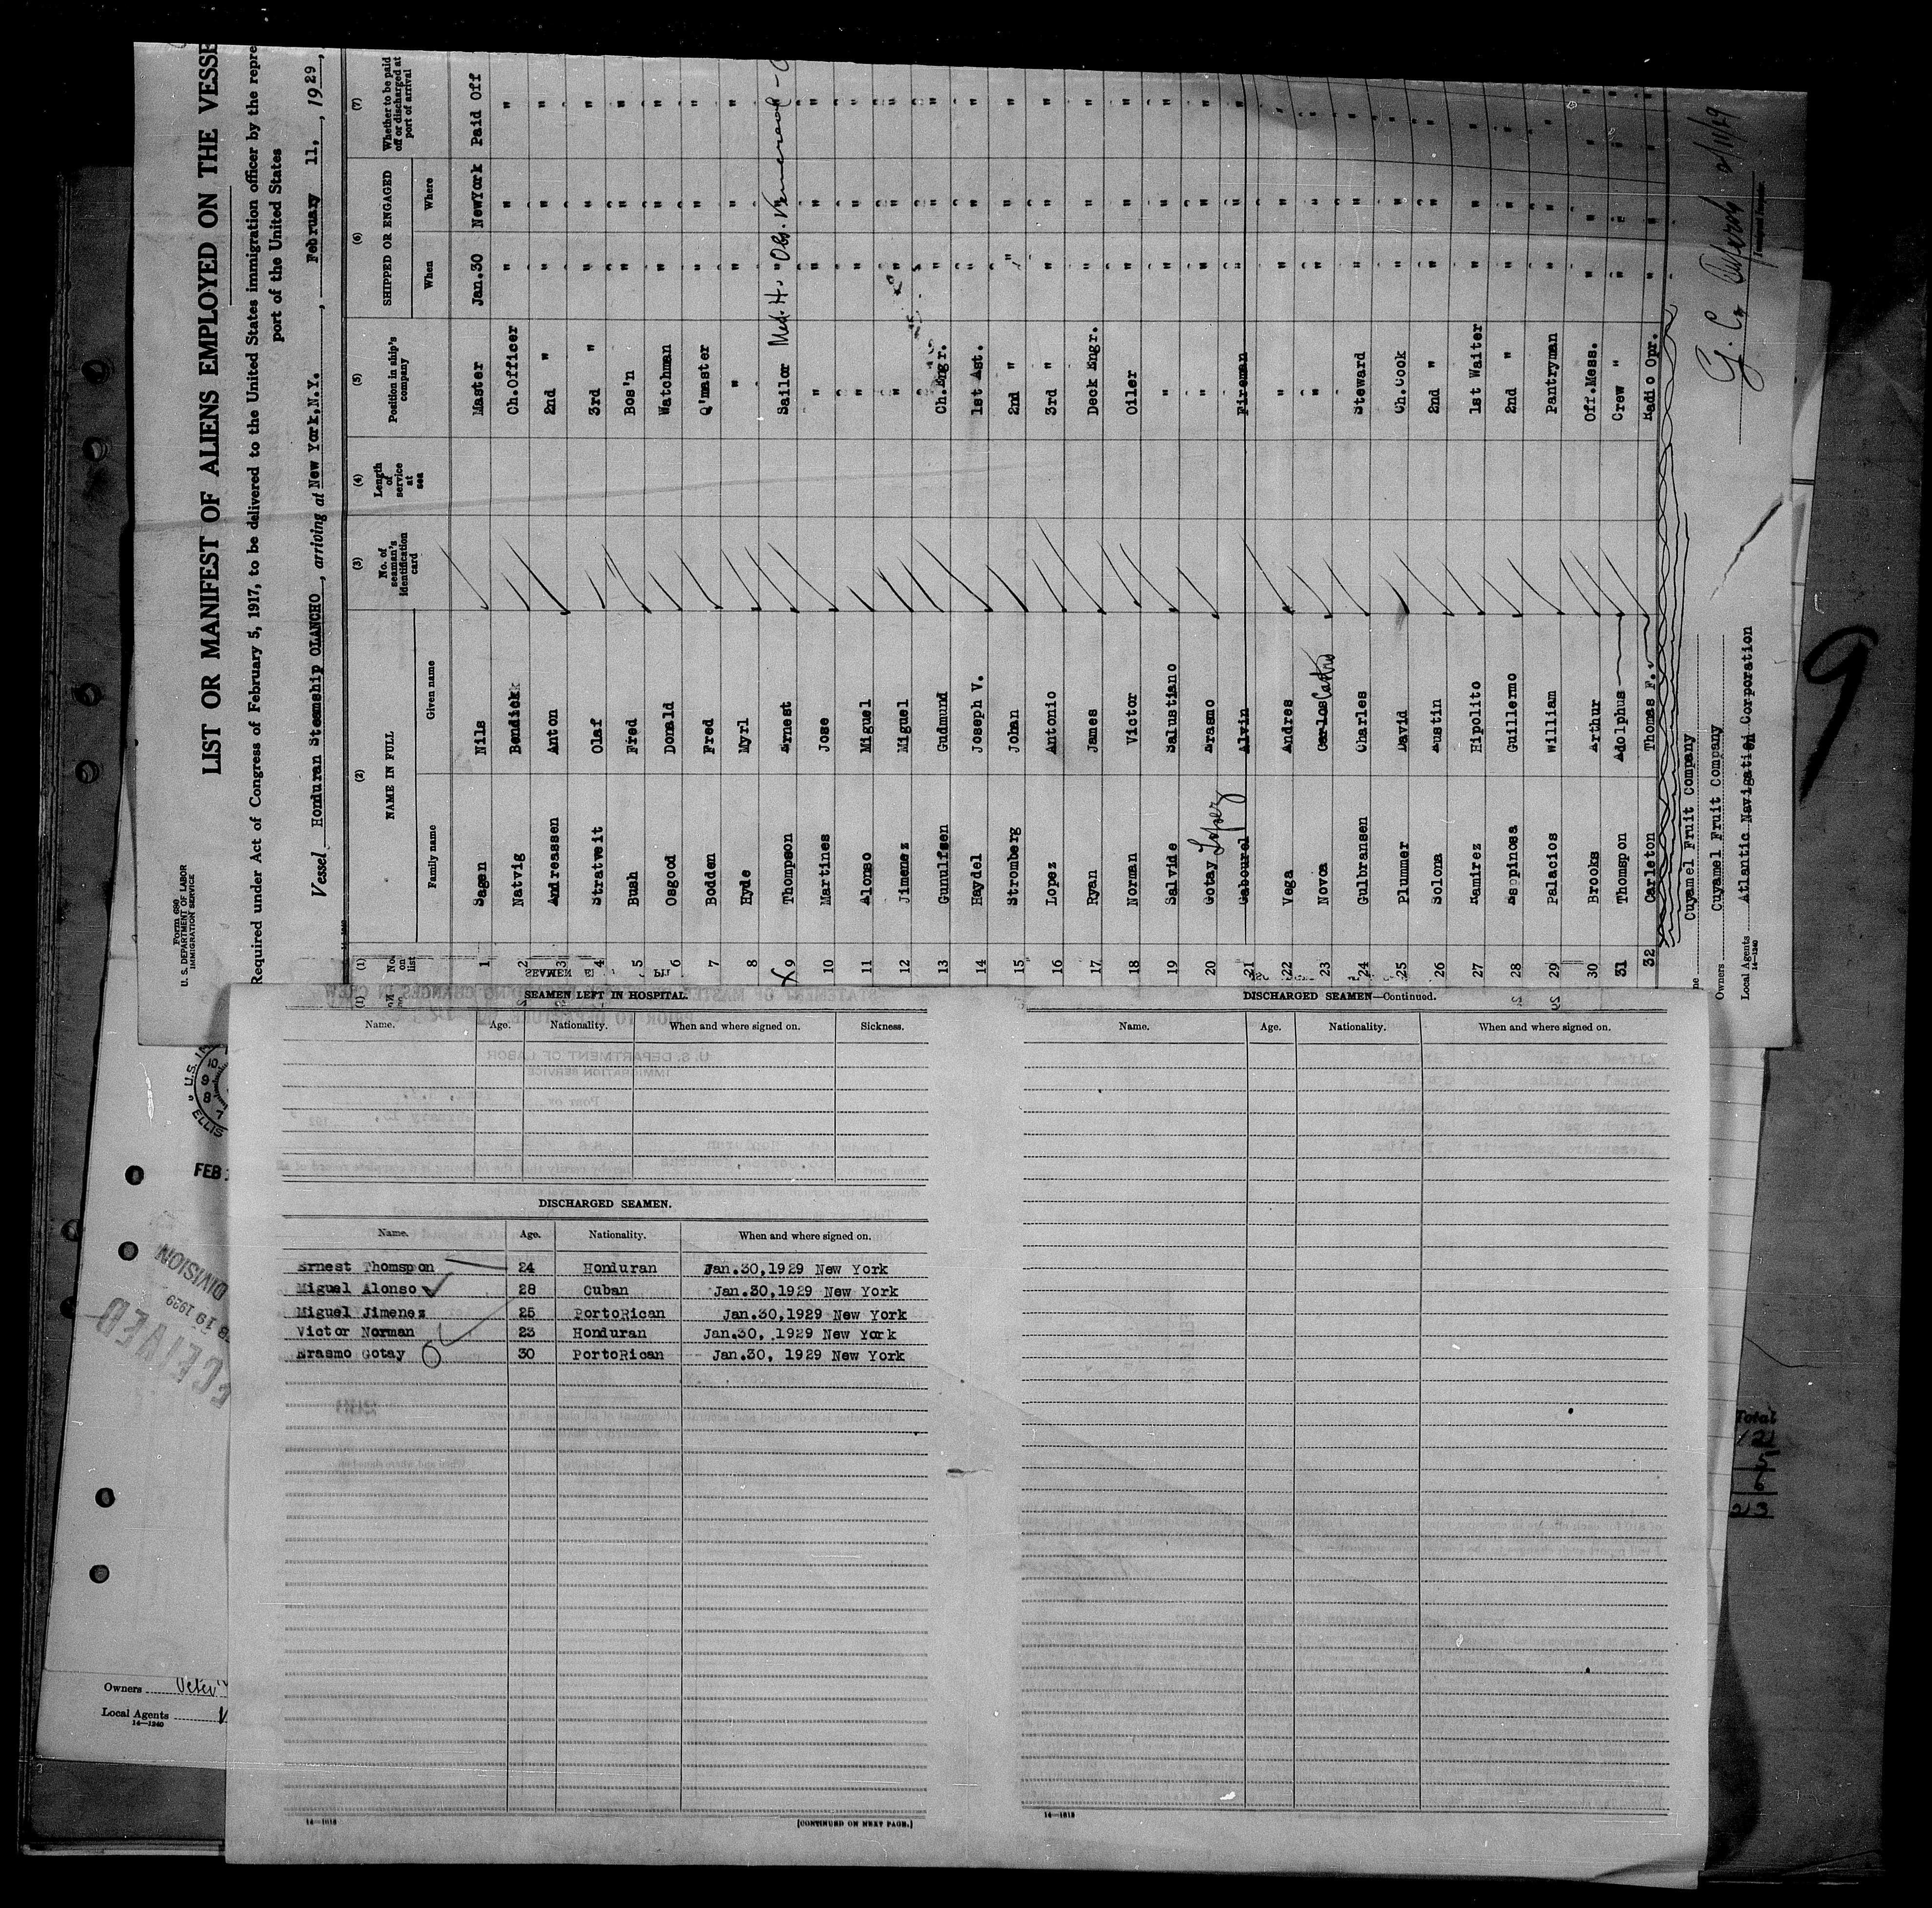 Form 680
U. S. DEPARTMENT OF LABOR
IMMIGRATION SERVICE
LIST OR MANIFEST OF ALIENS EMPLOYED ON THE VESSE
Required under Act of Congress of February 5, 1917, to be delivered to the United States immigration officer by the repre
port of the United States
Vessel Honduran Steamship OLANCHO, arriving at New York,N.Y., February 11, 1929,
(1) (2) (3) (4) (5) (6) (7)
No. on list NAME IN FULL No. of seaman's identification card Length of service at sea Position in ship's company SHIPPED OR ENGAGED Whether to be paid off or discharged at port of arrival
Family name Given name When Where
1 Sagen Nils Master Jan.30 NewYork Paid Off
2 Natvig Bendick Ch.Officer " " "
3 Andreassen Anton 2nd " " " "
4 Stratveit Olaf 3rd " " " "
5 Bush Fred Bos'n " " "
6 Osgood Donald Watchman " " "
7 Bodden Fred Q'master " " "
8 Hyde Myrl " " " "
9 Thompson Ernest Sailor Med. H. " Obs.
10 Martines Jose " " " "
11 Alonso Miguel " " " "
12 Jimenez Miguel " " " "
13 Gunulfsen Gudmund Ch.Engr. " " "
14 Haydel Joseph V. 1st Ast. " " "
15 Stromberg Johan 2nd " " " "
16 Lopez Antonio 3rd " " " "
17 Ryan James Deck Engr. " " "
18 Norman Victor Oiler " " "
19 Salvide Salustiano " " " "
20 Gotay Lopez Erasmo " " " "
21 Gabourel Alvin Fireman " " "
22 Vega Andres " " " "
23 Novoa Carlos Castro " " " "
24 Gulbransen Charles Steward " " "
25 Plummer David Ch.Cook " " "
26 Solona Austin 2nd " " " "
27 Ramirez Hipolito 1st Waiter " " "
28 Espinosa Guillermo 2nd " " " "
29 Palacios William Pantryman " " "
30 Brooks Arthur Off.Mess. " " "
31 Thomspon Adolphus Crew " " " "
32 Carleton Thomas F. Radio Opr. " " "
Cuyamel Fruit Company
Owners Cuyamel Fruit Company
Local Agents Atlantic Navigation Corporation
14—1240
2/11/29
9
SEAMEN LEFT IN HOSPITAL.
Name. Age. Nationality. When and where signed on. Sickness.
DISCHARGED SEAMEN.
Name. Age. Nationality. When and where signed on.
Ernest Thomspon 24 Honduran Jan.30,1929 New York
Miguel Alonso 28 Cuban Jan.30,1929 New York
Miguel Jimenez 25 PortoRican Jan.30,1929 New York
Victor Norman 23 Honduran Jan.30, 1929 New York
Erasmo Gotay 30 PortoRican Jan.30, 1929 New York
14—1613
[CONTINUED ON NEXT PAGE.]
DISCHARGED SEAMEN—Continued.
Name. Age. Nationality. When and where signed on.
14—1613
ELLIS
FEB
DIVISION
B 19 1929
CEIVED
Owners Peter
Local Agents
14—1240
Total
12
5
6
23